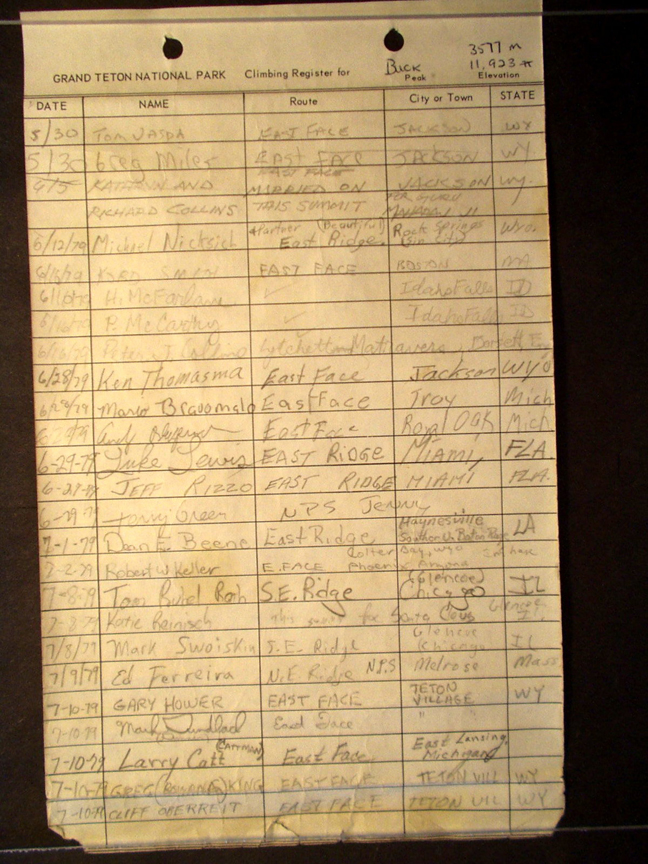 3577 m
GRAND TETON NATIONAL PARK Climbing Register for Buck 11,923 ft
Peak Elevation
DATE NAME Route City or Town STATE
5/30 TOM EAST FACE JACKSON WY
5/30 Greg Miles EAST FACE JACKSON WY.
EAST FACE
AND MARRIED ON JACKSON WY.
RICHARD COLLINS THIS SUMMIT
+Partner (Beautiful) Rock Springs
6/12/79 Michael Nicksich East Ridge (Sin City) Wyo.
EAST FACE BOSTON MA
H. McFarlane ✓ Idaho Falls ID
P. McCarthy ✓ Idaho Falls ID
Peter J. Collins
6/28/79 Ken Thomasma East Face Jackson Wyo
6/28/79 Marco Bravomalo East Face Troy Mich
Andy East Face Royal Oak Mich.
6-29-79 Luke Lewis EAST RIDGE MIAMI, FLA.
6-29-79 JEFF RIZZO EAST RIDGE MIAMI FLA.
6-29-79 Green NPS Jenny
Haynesville
7-1-79 Dean E. Beene East Ridge Southern U. Baton Rouge LA
Colter Bay, Wyo
7-2-79 Robert W Keller E. FACE Phoenix, Arizona
(Glencoe)
7-8-79 Tom S.E. Ridge Chicago IL
7-8-79 Katie Reinisch Glencoe
Glencoe
7/8/79 Mark Swoiskin S.E. Ridge Chicago IL
7/9/79 Ed Ferreira N.E. Ridge NPS Melrose Mass
TETON
7-10-79 GARY HOWER EAST FACE VILLAGE WY
7-10-79 Mark East Face " "
(CATTMAN) East Lansing,
7-10-79 Larry Catt East Face Michigan
7-10-79 GREG KING EAST FACE TETON VILL WY
7-10-79 CLIFF OBERREIT EAST FACE TETON VIL WY